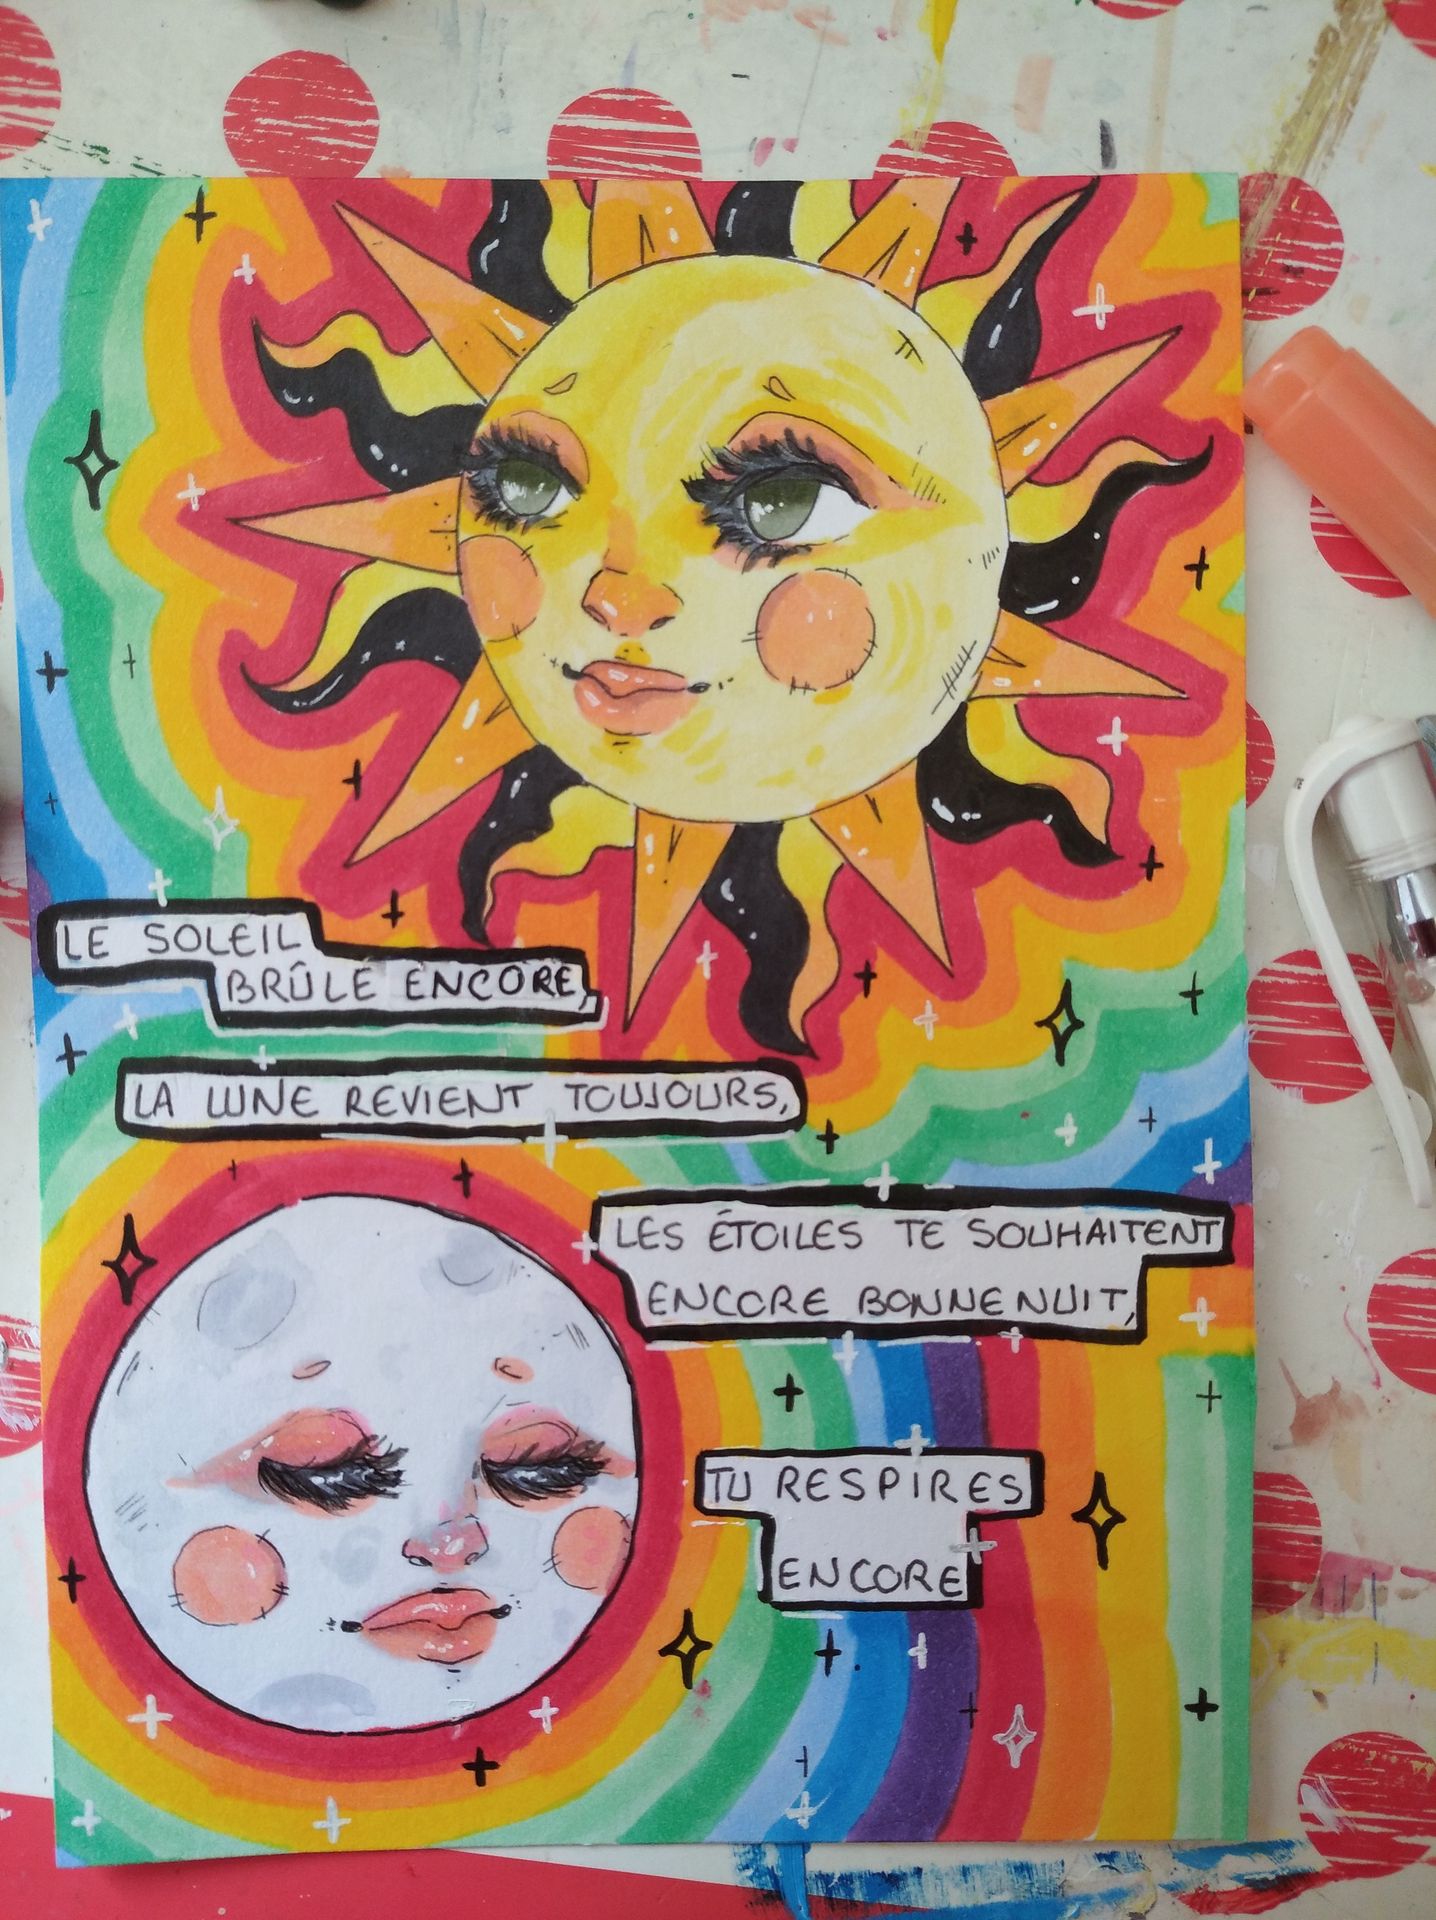 LE SOLEIL
BRÛLE ENCORE,
LA LUNE REVIENT TOUJOURS,
LES ÉTOILES TE SOUHAITENT
ENCORE BONNE NUIT,
TU RESPIRES
ENCORE